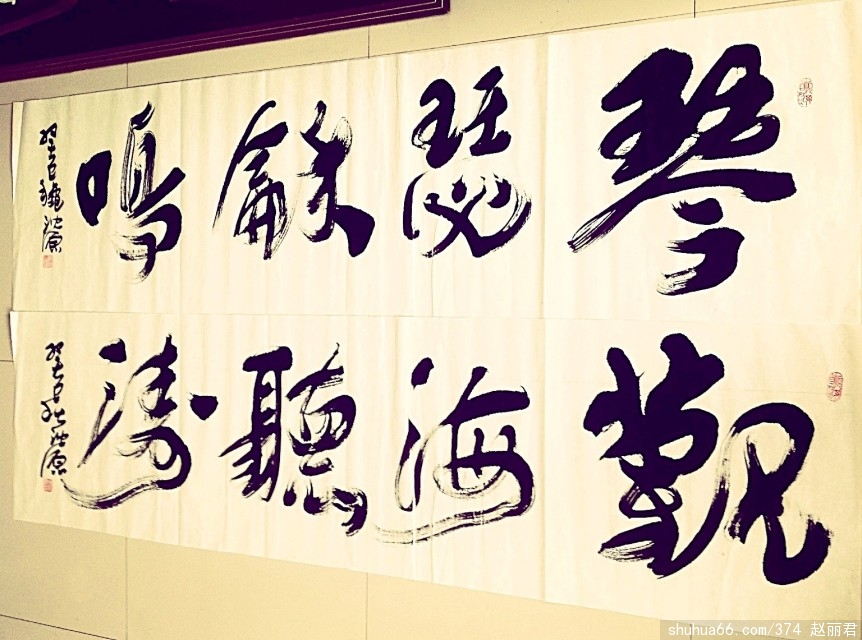 琴瑟龢鳴
觀海聽濤
shuhua66.com/374 赵丽君